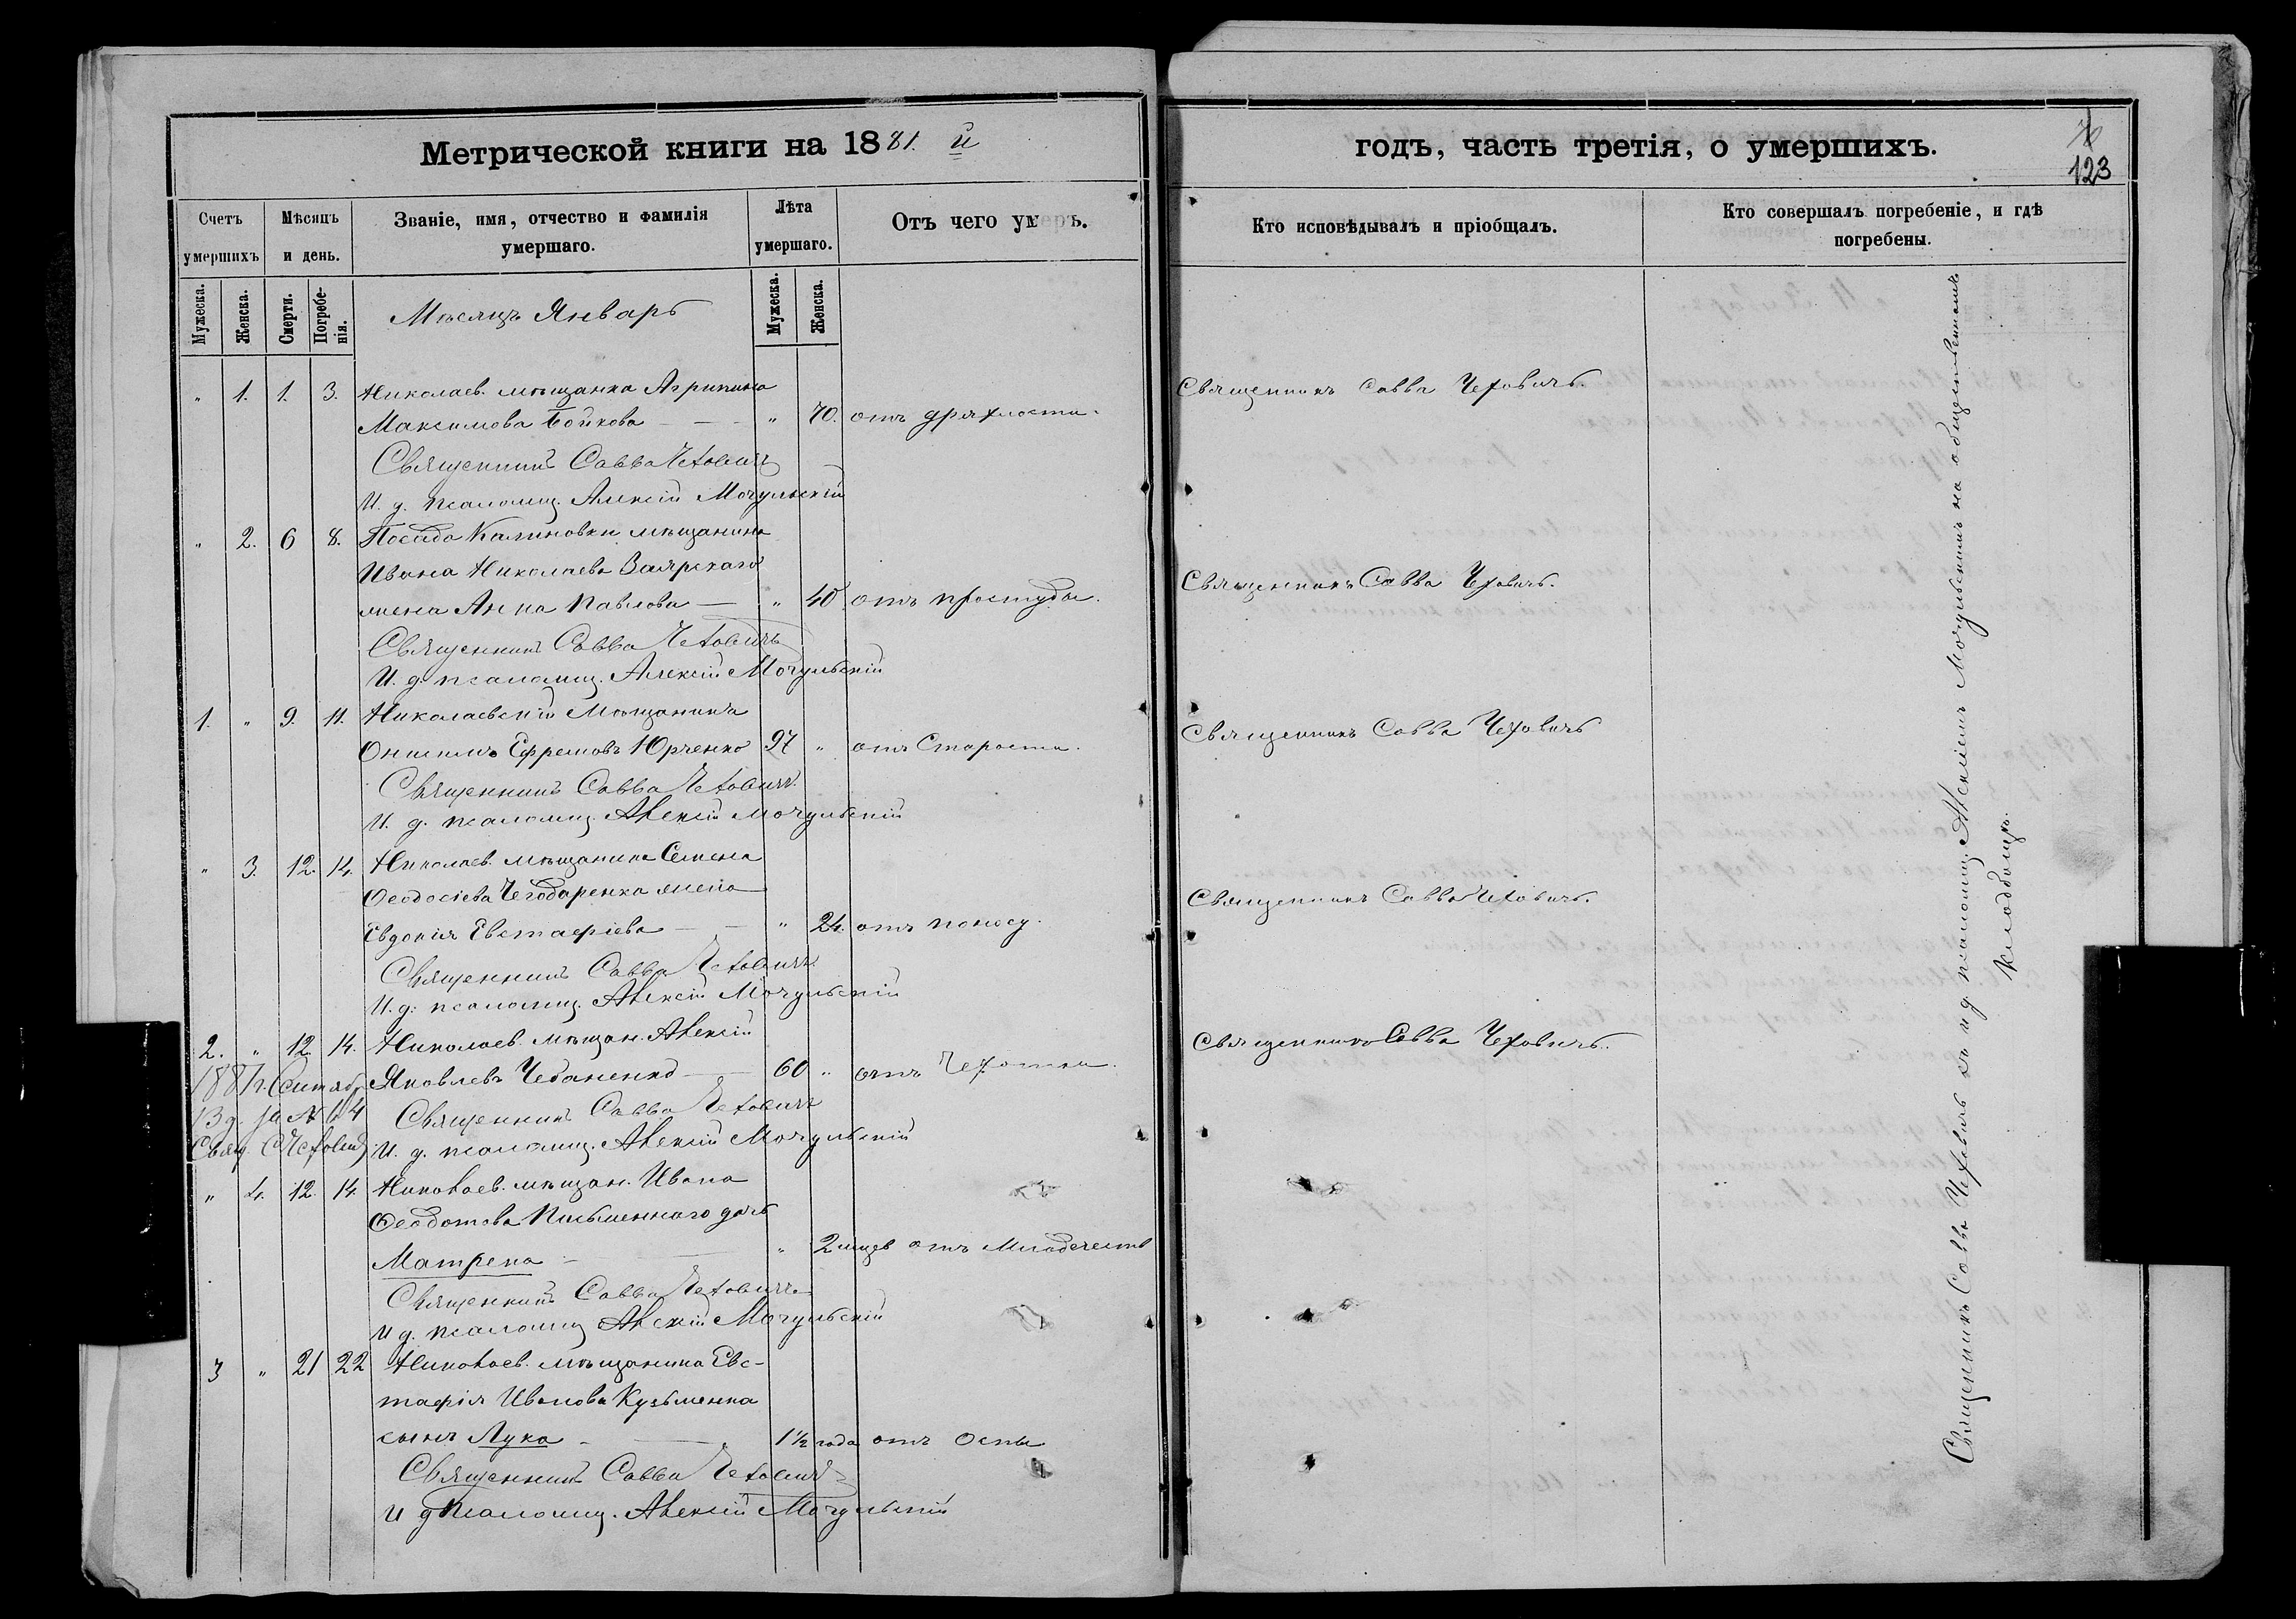 Метрической книги на 1881. й
Счетъ умершихъ
Мѣсяцъ и день.
Званіе, имя, отчество и фамилія умершаго.
Лѣта умершаго.
Отъ чего умеръ.
Мужеска.
Женска.
Смерти.
Погребенія.
Мужеска.
Женска.
Мѣсяцъ Январь
„ 1. 1. 3. Николаев. мѣщанка Агрипина
Максимова Бойкова — „ 70. отъ дряхлости.
Священникъ Савва Чеховичъ
И. д. псаломщ. Алексій Мочульскій
„ 2. 6 8. Посада Калиновки мѣщанина
Ивана Николаева Заярскаго
жена Анна Павлова — „ 40 отъ простуды.
Священникъ Савва Чеховичъ
И. д. псаломщ. Алексій Мочульскій
1. „ 9. 11. Николаевскій Мѣщанинъ
Онисимъ Ефремовъ Юрченко 97 „ отъ Старости.
Священникъ Савва Чеховичъ
И. д. псаломщ. Алексій Мочульскій
„ 3. 12. 14. Николаев. мѣщанина Семена
Ѳеодосіева Чегодаренка жена
Евдокія Евстафіева — „ 24. отъ поносу.
Священникъ Савва Чеховичъ
И. д. псаломщ. Алексій Мочульскій
2. „ 12 14. Николаев. мѣщан. Алексій
Яковлевъ Чебаненко — 60 „ отъ Чехотки.
Священникъ Савва Чеховичъ
И. д. псаломщ. Алексій Мочульскій
1881 г. Сентяб.
13 д. №
Свящ. С Чеховичъ
„ 4. 12. 14. Николаев. мѣщан. Ивана
Ѳеодотова Письменнаго дочь
Матрена — „ 2 мцев отъ Младечеств
Священникъ Савва Чеховичъ
И д. псаломщ Алексій Мочульскій
3 „ 21 22 Николаев. мѣщанина Евс-
тафія Иванова Кузьменка
сынъ Лука — 1½ года отъ Оспы
Священникъ Савва Чеховичъ
И д Псаломщ. Алексій Мочульскій
годъ, часть третія, о умершихъ.
123
Кто исповѣдывалъ и пріобщалъ.
Кто совершалъ погребеніе, и гдѣ погребены.
Священникъ Савва Чеховичъ.
Священникъ Савва Чеховичъ.
Священникъ Савва Чеховичъ
Священникъ Савва Чеховичъ.
Священникъ Савва Чеховичъ.
Священникъ Савва Чеховичъ съ и д псаломщ. Алексіемъ Мочульскимъ на общественномъ
кладбищѣ.